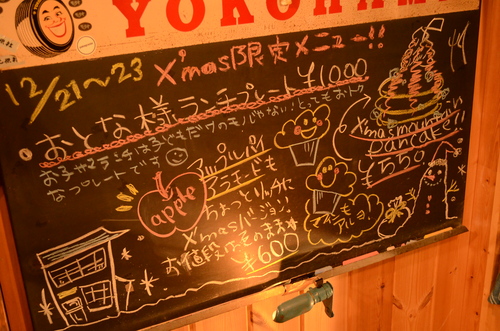 YOKOHAMA
12/21〜23 X'mas限定メニュー!!
・おとな様ランチプレート¥1000
お子サマランチは子どもだけのモノじゃない!とってもおトク
なプレートです
アップルパイ
アラモードも
ちょっとリッチに
X'masバージョン
お値段はそのまま
¥600
apple
X'mas mountain
pancakeも
もちろん
マフィンも
アルヨ!